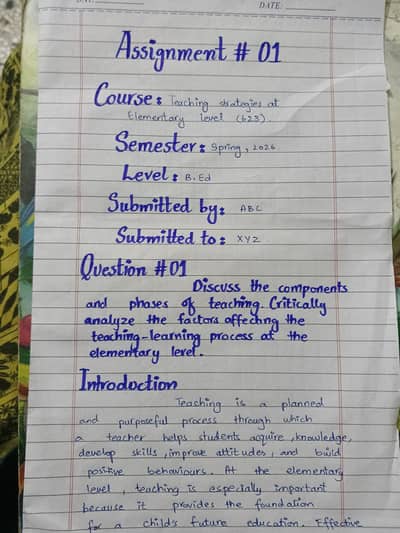 DATE:
Assignment # 01
Course: Teaching strategies at
Elementary level (623).
Semester: Spring, 2026
Level: B.Ed
Submitted by: ABC
Submitted to: XYZ
Question #01
Discuss the components
and phases of teaching. Critically
analyze the factors affecting the
teaching-learning process at the
elementary level.
Introduction
Teaching is a planned
and purposeful process through which
a teacher helps students acquire, knowledge,
develop skills, improve attitudes, and build
positive behaviours. At the elementary
level, teaching is especially important
because it provides the foundation
for a child's future education. Effective